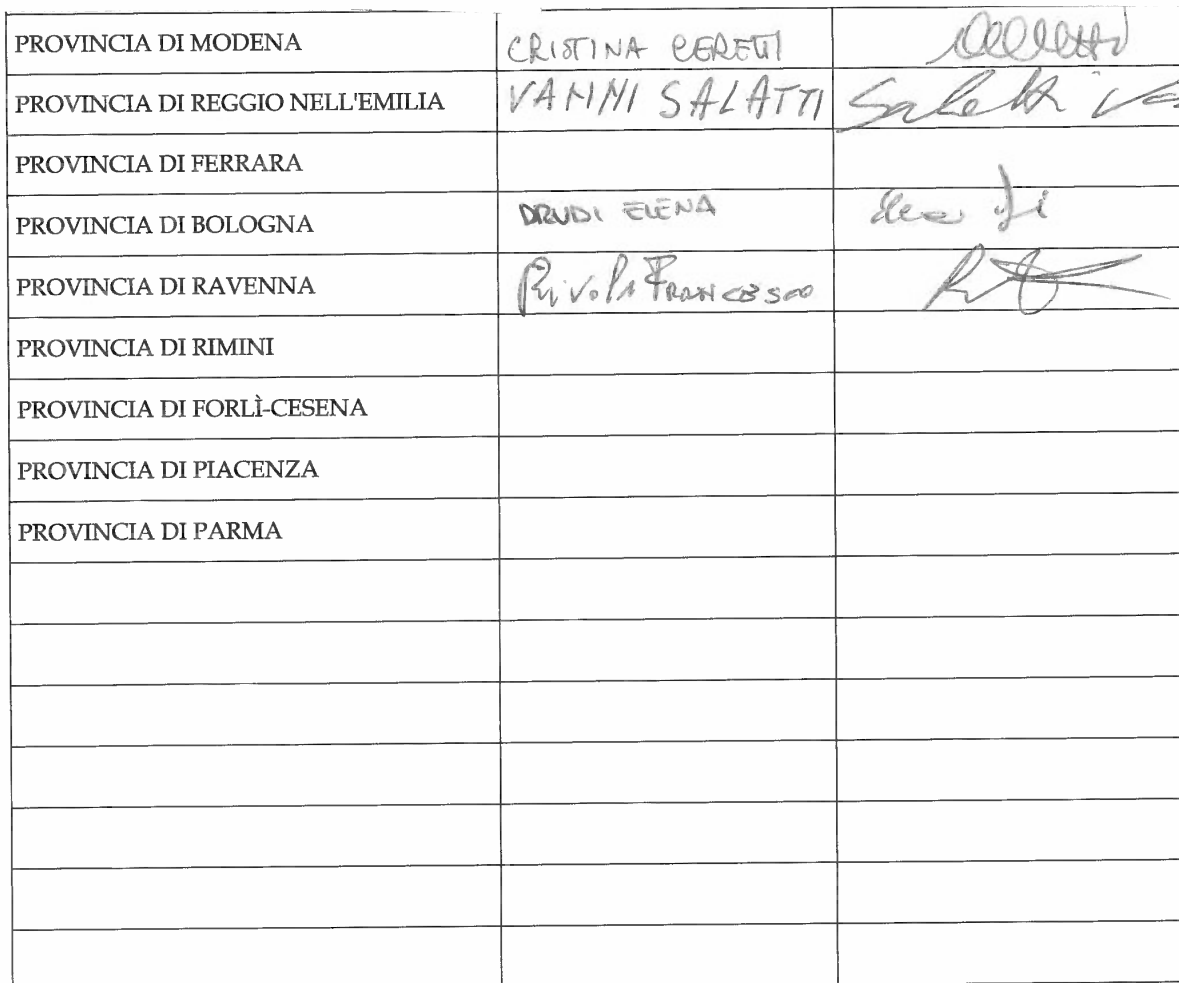 PROVINCIA DI MODENA CRISTINA CERETTI
PROVINCIA DI REGGIO NELL'EMILIA VANNI SALATTI
PROVINCIA DI FERRARA
PROVINCIA DI BOLOGNA DRUDI ELENA
PROVINCIA DI RAVENNA Rivola FRANCESCO
PROVINCIA DI RIMINI
PROVINCIA DI FORLÌ-CESENA
PROVINCIA DI PIACENZA
PROVINCIA DI PARMA